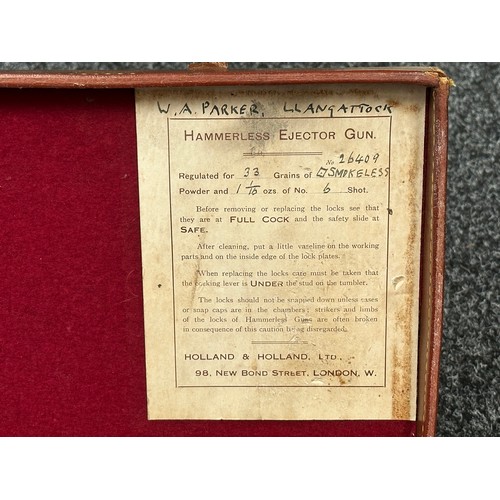 W. A. PARKER, LLANGATTOCK
HAMMERLESS EJECTOR GUN.
No 26409
Regulated for 33 Grains of SMOKELESS
Powder and 1 1/10 ozs. of No. 6 Shot.
Before removing or replacing the locks see that
they are at FULL COCK and the safety slide at
SAFE.
After cleaning, put a little vaseline on the working
parts and on the inside edge of the lock plates.
When replacing the locks care must be taken that
the cocking lever is UNDER the stud on the tumbler.
The locks should not be snapped down unless cases
or snap caps are in the chambers; strikers and limbs
of the locks of Hammerless Guns are often broken
in consequence of this caution being disregarded.
HOLLAND & HOLLAND, LTD.,
98, NEW BOND STREET, LONDON, W.